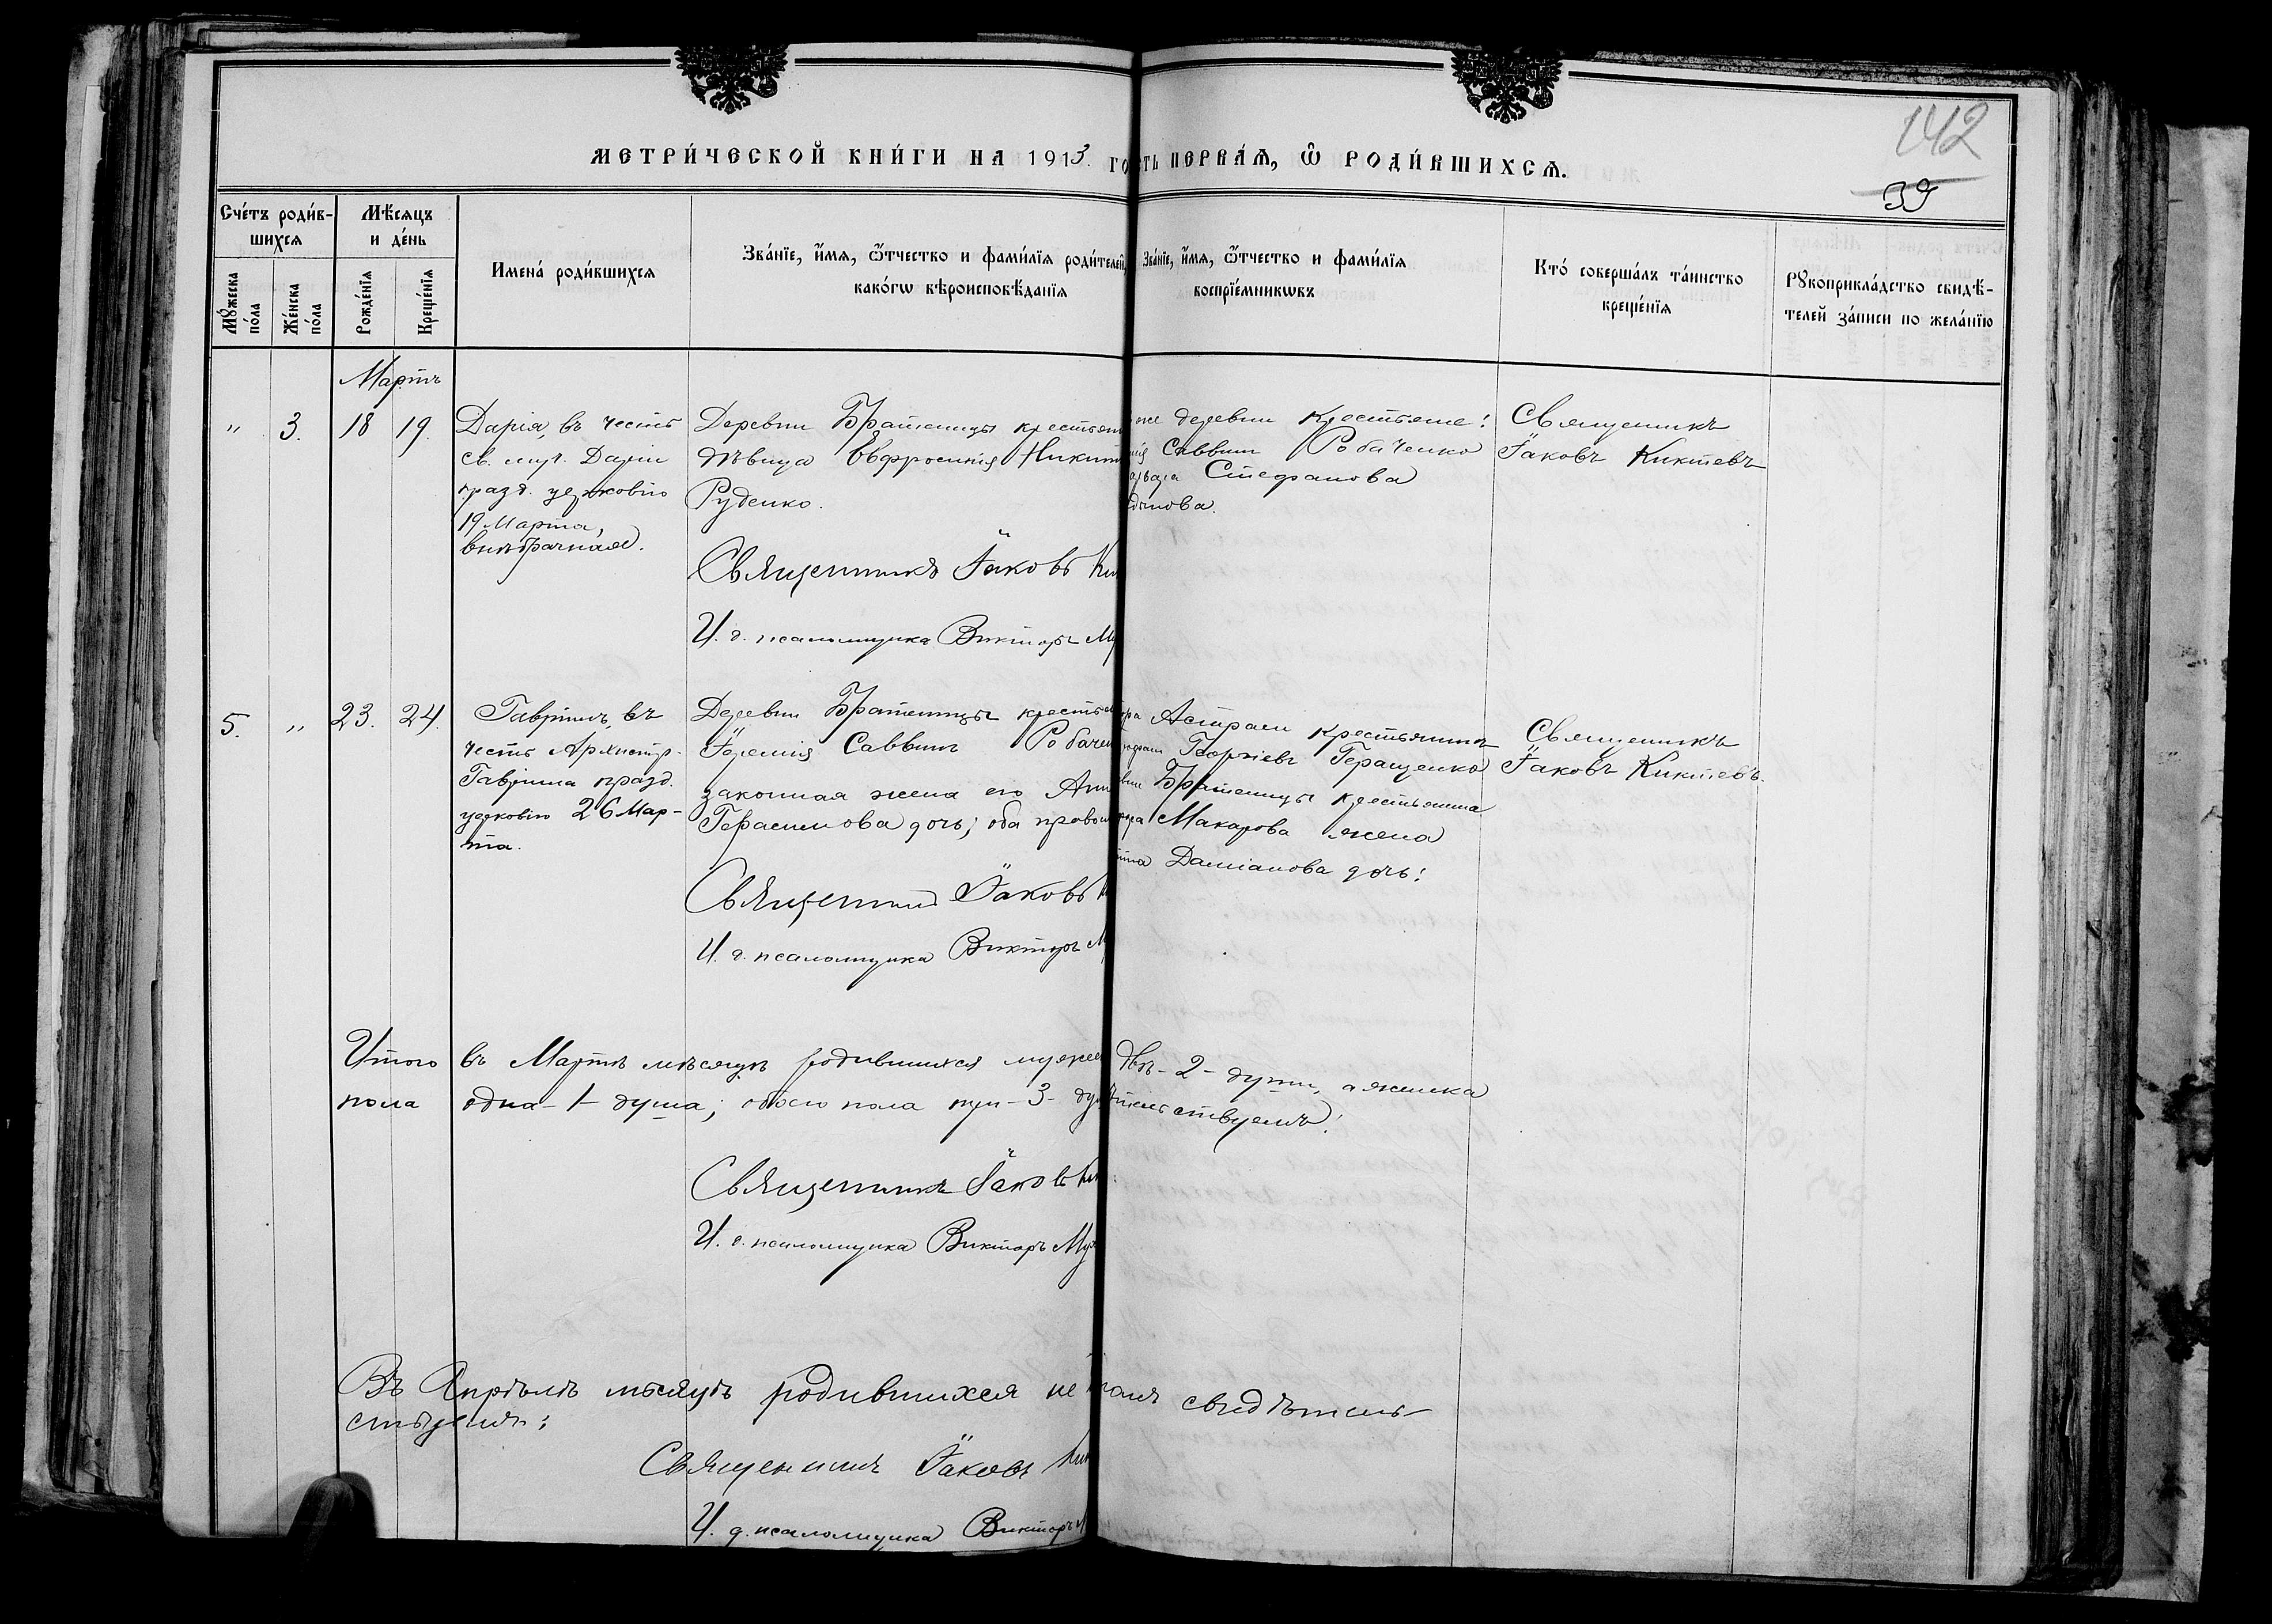 МЕТРИ́ЧЕСКОЙ КНИ́ГИ НА 1913. ГО
СТЬ ПЕРВА́Ѧ, Ѡ҆ РОДИ́ВШИХСѦ.
142
39
Сче́тъ роди́в-
шихсѧ
Мѣ́сѧцъ
и де́нь
Мꙋ́жеска
по́ла
Же́нска
по́ла
Рожде́нїѧ
Креще́нїѧ
Имена̀ роди́вшихсѧ
Зва́нїе, и҆́мѧ, ѻ҆́тчество и фами́лїѧ роди́телей,
како́гѡ вѣроисповѣ́данїѧ
Зва́нїе, и҆́мѧ, ѻ҆́тчество и фами́лїѧ
воспрїе́мникѡвъ
Кто̀ соверша́лъ та́инство
креще́нїѧ
Рꙋкоприкла́дство свидѣ́-
телей за́писи по жела́нїю
Мартъ
" 3. 18 19.
Дарія, въ честь
св. муч. Даріи
празд. церковію
19 Марта,
внѣбрачная.
Деревни Братеницы крестьян
дѣвица Евфросинія Никит
Руденко.
Священникъ Іаковъ Ки
И. д. псаломщика Викторъ Му
же деревни крестьяне:
Саввинъ Робаченко
Стефанова
Священникъ
Іаковъ Киктевъ
5. " 23. 24.
Гавріилъ, въ
честь Архистр.
Гавріила празд.
церковію 26 Мар-
та.
Деревни Братеницы крестья
Іеремія Саввинъ Робачен
законная жена его Анн
Герасимова дочь; оба правосл
Священникъ Іаковъ К
И. д. псаломщика Викторъ М
ора Астраеи крестьянинъ
Георгіевъ Геращенко
вни Братеницы крестьянина
Макарова жена
Даміанова дочь:
Священникъ
Іаковъ Киктевъ.
Итого въ Мартѣ мѣсяцѣ родившихся мужес
двѣ - 2 - души, а женска
пола одна - 1 - душа; обоего пола три - 3 - ду
тельствуемъ:
Священникъ Іаковъ Кик
И. д. псаломщика Викторъ Му
Въ Апрѣлѣ мѣсяцѣ родившихся не
свидѣтель-
ствуемъ:
Священникъ Іаковъ Кик
И. д. псаломщика Викторъ М